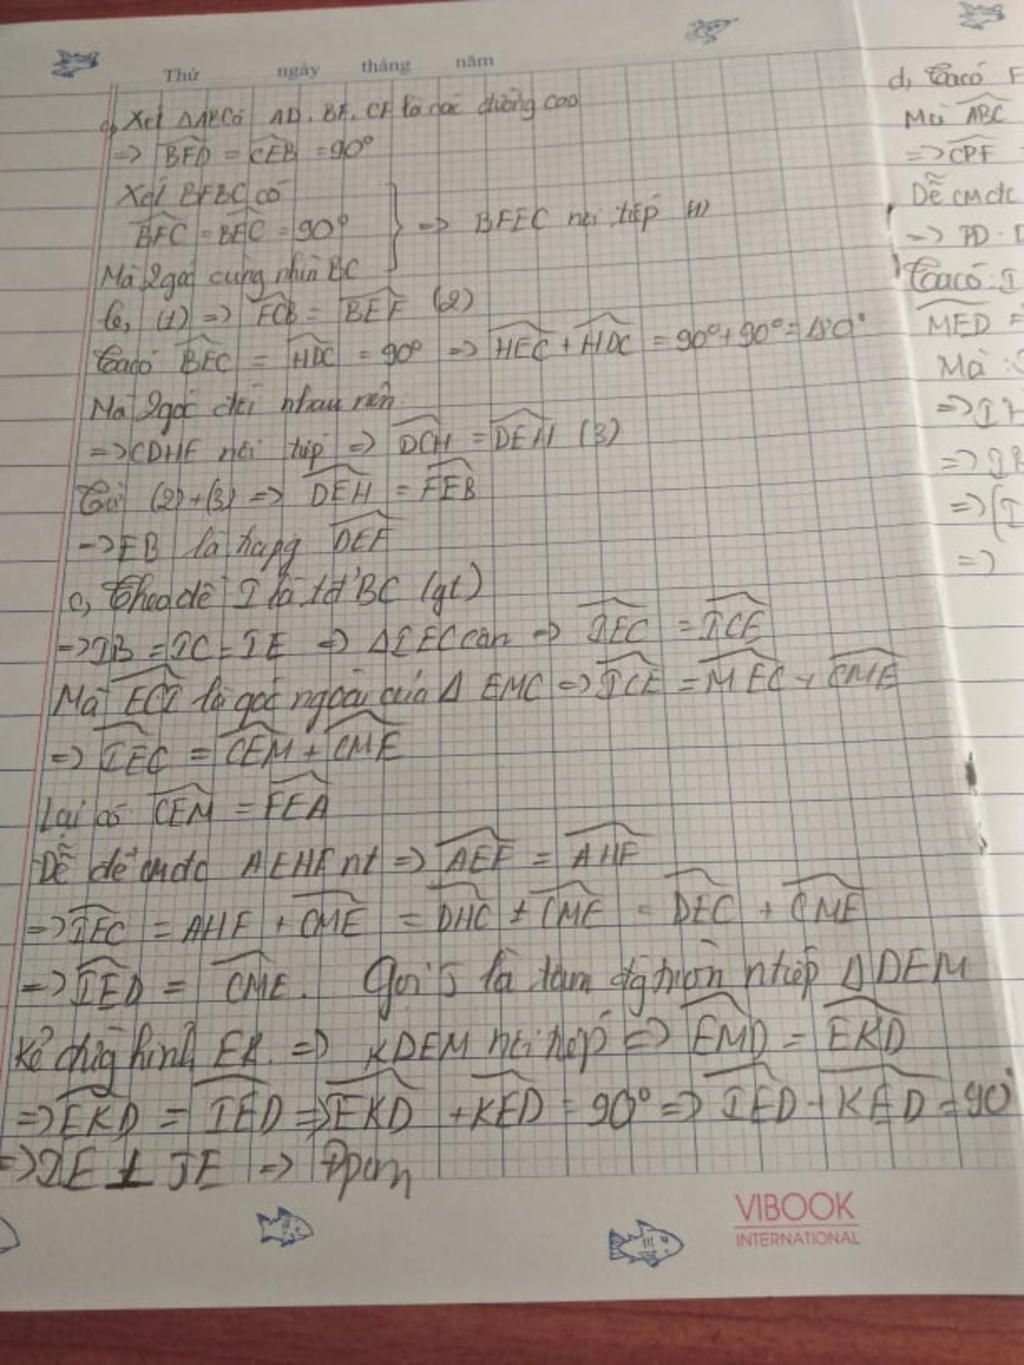 Thứ ngày tháng năm
a, Xét ΔABC có AD, BE, CF là các đường cao
=> BFD = CEB = 90°
Xét BFEC có
BFC = BEC = 90°
Mà 2 góc cùng nhìn BC
=> BFEC nội tiếp (1)
b, (1) => FCB = BEF (2)
Ta có BEC = HDC = 90° => HEC + HDC = 90° + 90° = 180°
Mà 2 góc đối nhau nên
=> CDHE nội tiếp => DCH = DEH (3)
Từ (2)+(3) => DEH = FEB
=> EB là DEF
c, Theo đề I là tđ BC (gt)
=> IB = IC = IE => ΔIEC cân => IEC = ICE
Mà ECI là góc ngoài của Δ EMC => ICE = MEC + CME
=> IEC = CEM + CME
Lại có CEM = FEA
Dễ để cmđc AEHF nt => AEF = AHF
=> IEC = AHF + CME = DHC + CME = DEC + CME
=> IED = CME. Gọi J là tâm đg tròn ntiếp ΔDEM
Kẻ đg kính EK => KDEM nội tiếp => EMD = EKD
=> EKD = IED => EKD + KED = 90° => IED + KED = 90°
=> IE ⊥ JE => Đpcm
VIBOOK
INTERNATIONAL
d, Ta có
Mà ABC
=> CPF
Dễ cmđc
=> PD.
Ta có: I
MED =
Mà :
=> I
=>
=> (I
=>